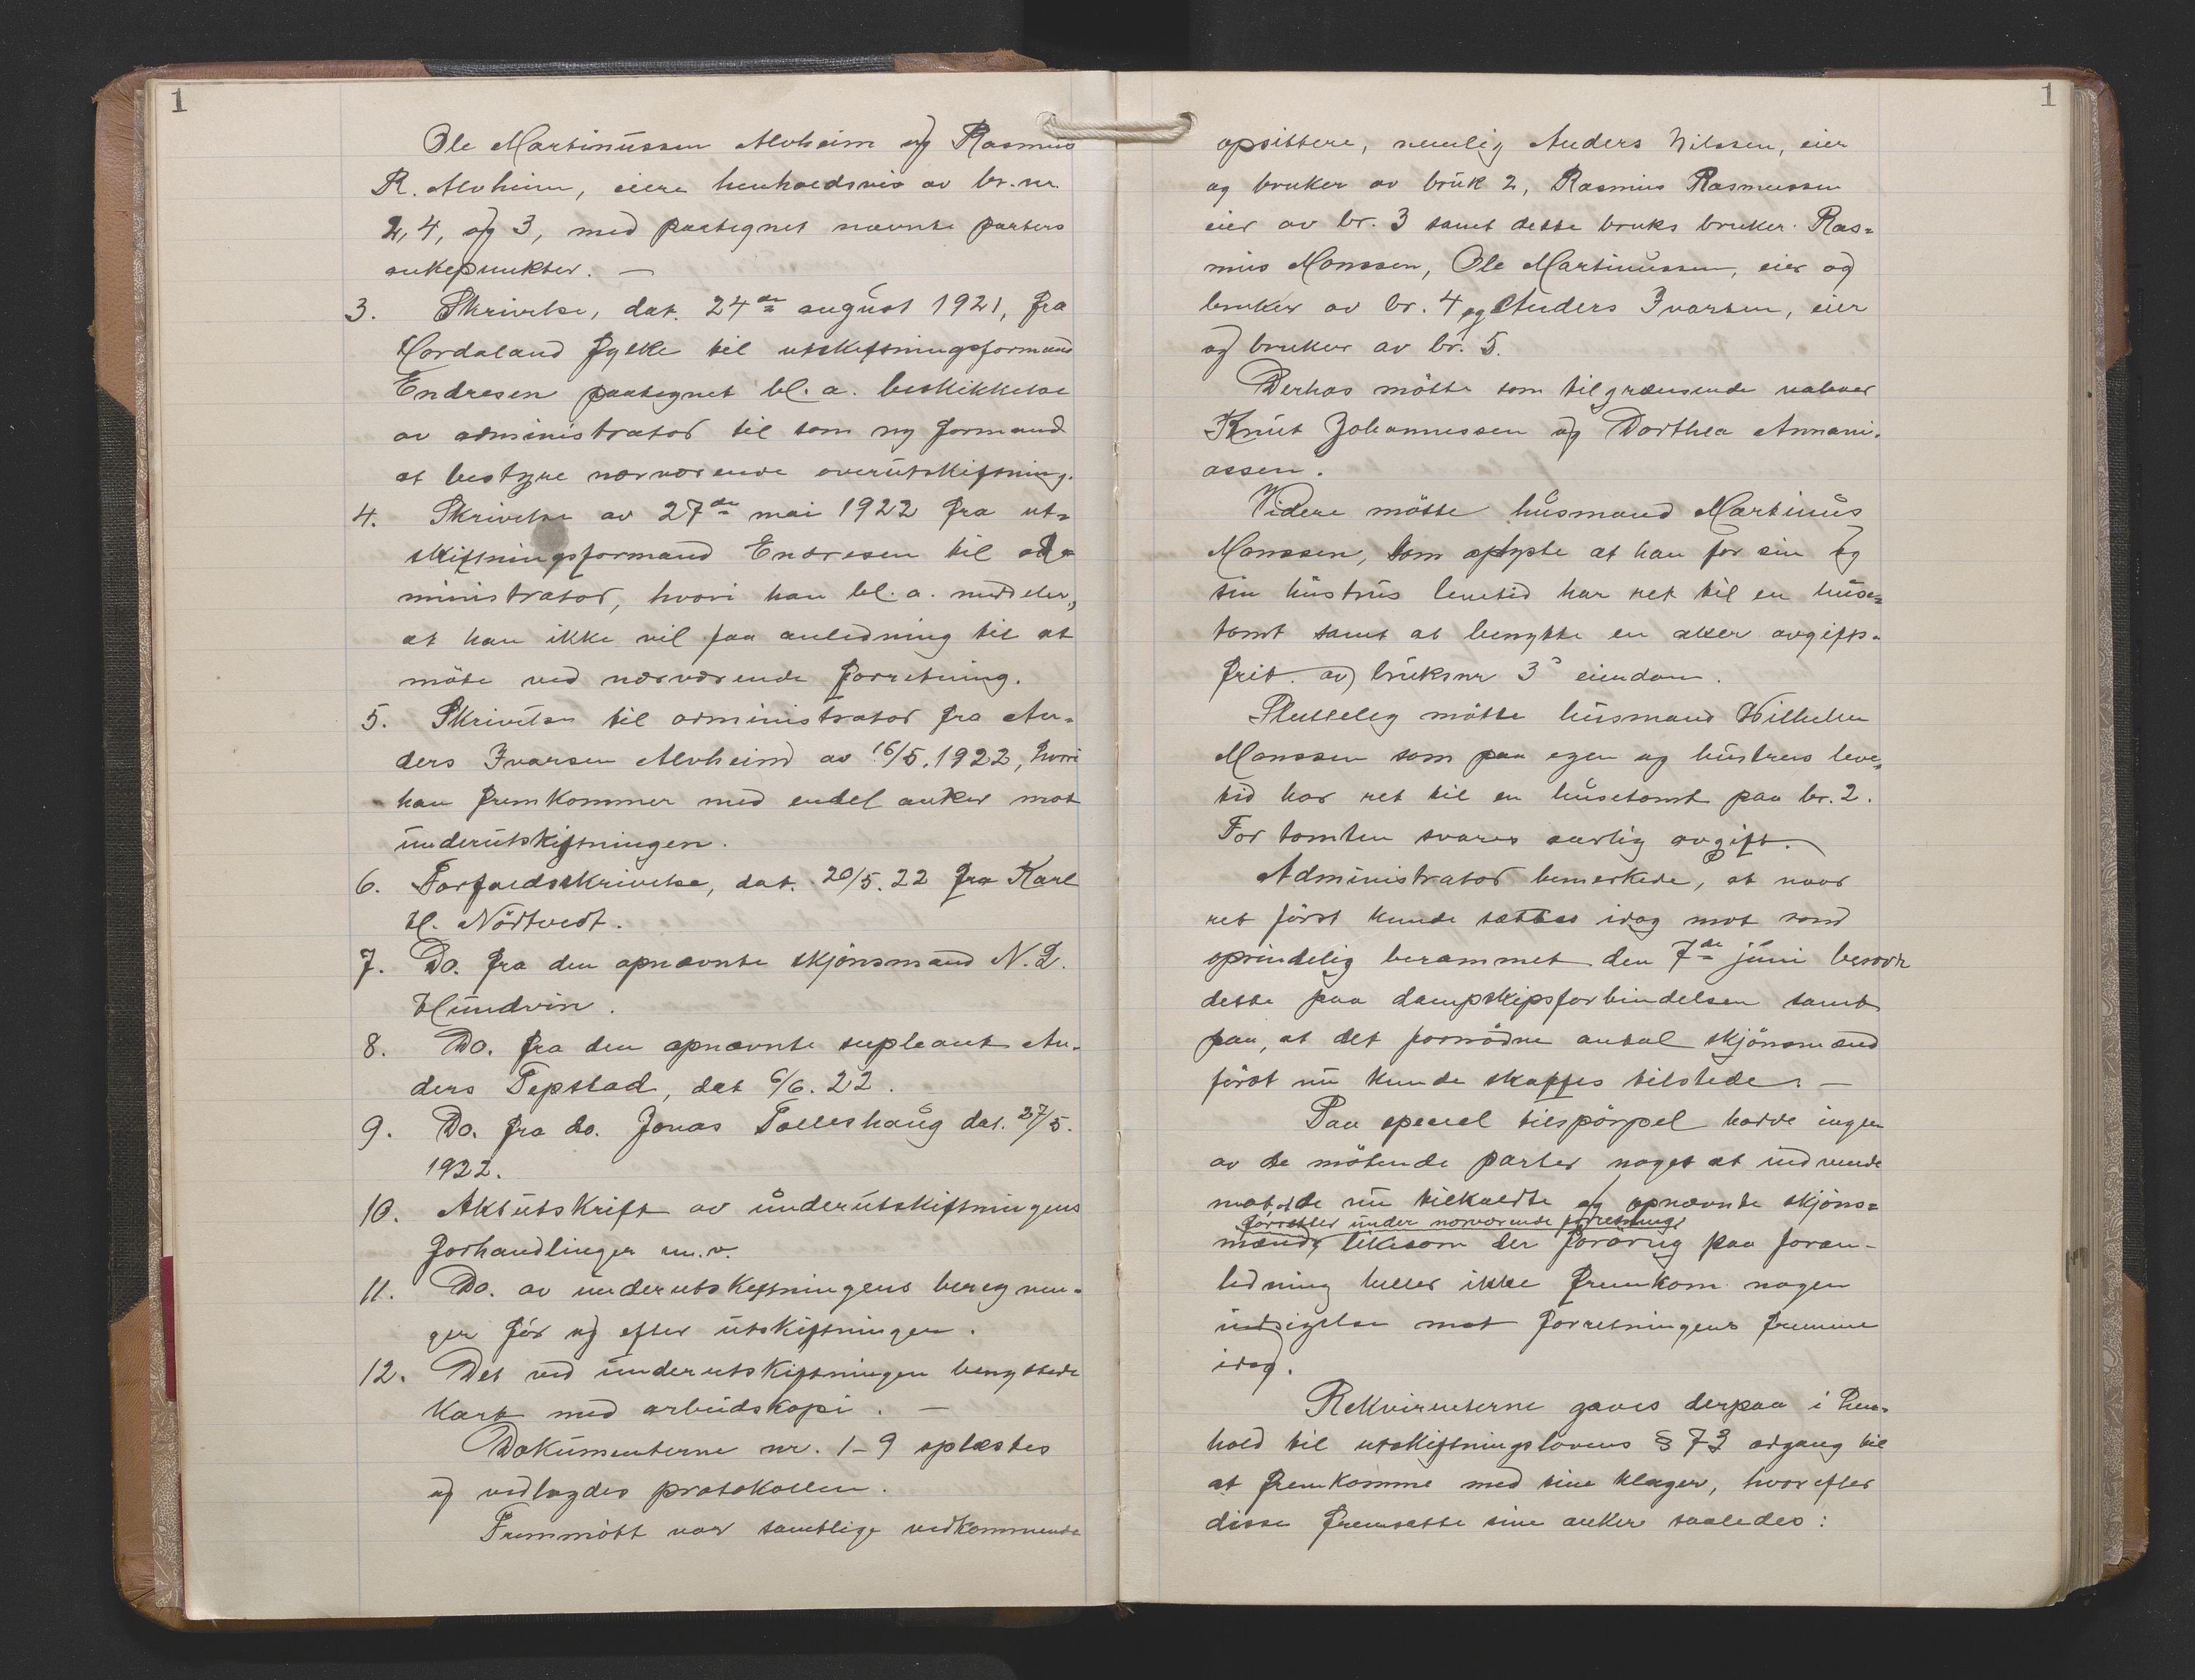 1
Ole Martinussen Alvheim og Rasmus
R. Alvheim, eiere henholdsvis av br. nr.
2, 4, og 3, med paategnet nævnte parters
ankepunkter. —
3. Skrivelse, dat. 24de august 1921, fra
Hordaland fylke til utskiftningsformand
Endresen paategnet bl. a. beskikkelse
av administrator til som ny formand
at bestyre nærværende overutskiftning.
4. Skrivelse av 27de mai 1922 fra ut=
skiftningsformand Endresen til ad=
ministrator, hvori han bl. a. meddeler,
at han ikke vil faa anledning til at
møte ved nærværende forretning.
5. Skrivelse til administrator fra An=
ders Ivarsen Alvheim av 16/5. 1922, hvori
han fremkommer med endel anker mot
underutskiftningen.
6. Forfaldsskrivelse, dat. 20/5. 22 fra Karl
H. Nördtvedt.
7. Do. fra den opnævnte skjönsmand N. L.
Hundvin.
8. Do. fra den opnævnte supleant An=
ders Tepstad, dat 6/6. 22.
9. Do. fra do. Jonas Tolleshaug dat. 27/5.
1922.
10. Aktutskrift av underutskiftningens
forhandlinger m. v.
11. Do. av underutskiftningens beregnin=
ger för og efter utskiftningen.
12. Det ved underutskiftningen benyttede
kart med arbeidskopi. —
Dokumenterne nr. 1–9 oplæstes
og vedlagdes protokollen.
Fremmött var samtlige vedkommende
1
opsittere, nemlig Anders Nilssen, eier
og bruker av bruk 2, Rasmus Rasmussen
eier av br. 3 samt dette bruks bruker Ras=
mus Monssen, Ole Martinussen, eier og
bruker av br. 4 og Anders Ivarsen, eier
og bruker av br. 5.
Derhos mötte som tilgrænsende naboer
Knut Johannessen og Dorthea Annani=
assen.
Videre mötte husmand Martinus
Monssen, som oplyste at han for sin og
sin hustrus levetid har ret til en huse=
tomt samt at benytte en aker avgifts=
frit av bruksnr 3s eiendom.
Slutteleg mötte husmand Wilhelm
Monssen som paa egen og hustrus leve=
tid har ret til en husetomt paa br. 2.
For tomten svares aarlig avgift.
Administrator bemerkede, at naar
ret först kunde sættes idag mot som
oprindelig berammet den 7de juni beroor
dette paa dampskipsforbindelsen samt
paa, at det fornödne antal skjönsmænd
först nu kunde skaffes tilstede. —
Paa speciel tilspörsel hadde ingen
av de mötende parter noget at indvende
mot de nu tilkaldte og opnævnte skjöns=
forretter under nærværende forretning,
mænd, likesom der forövrig paa foran=
ledning heller ikke fremkom nogen
indsigelse mot forretningens fremme
idag.
Rekvirenterne gaves derpaa i hen=
hold til utskiftningslovens § 73 adgang til
at fremkomme med sine klager, hvorefter
disse fremsatte sine anker saaledes: